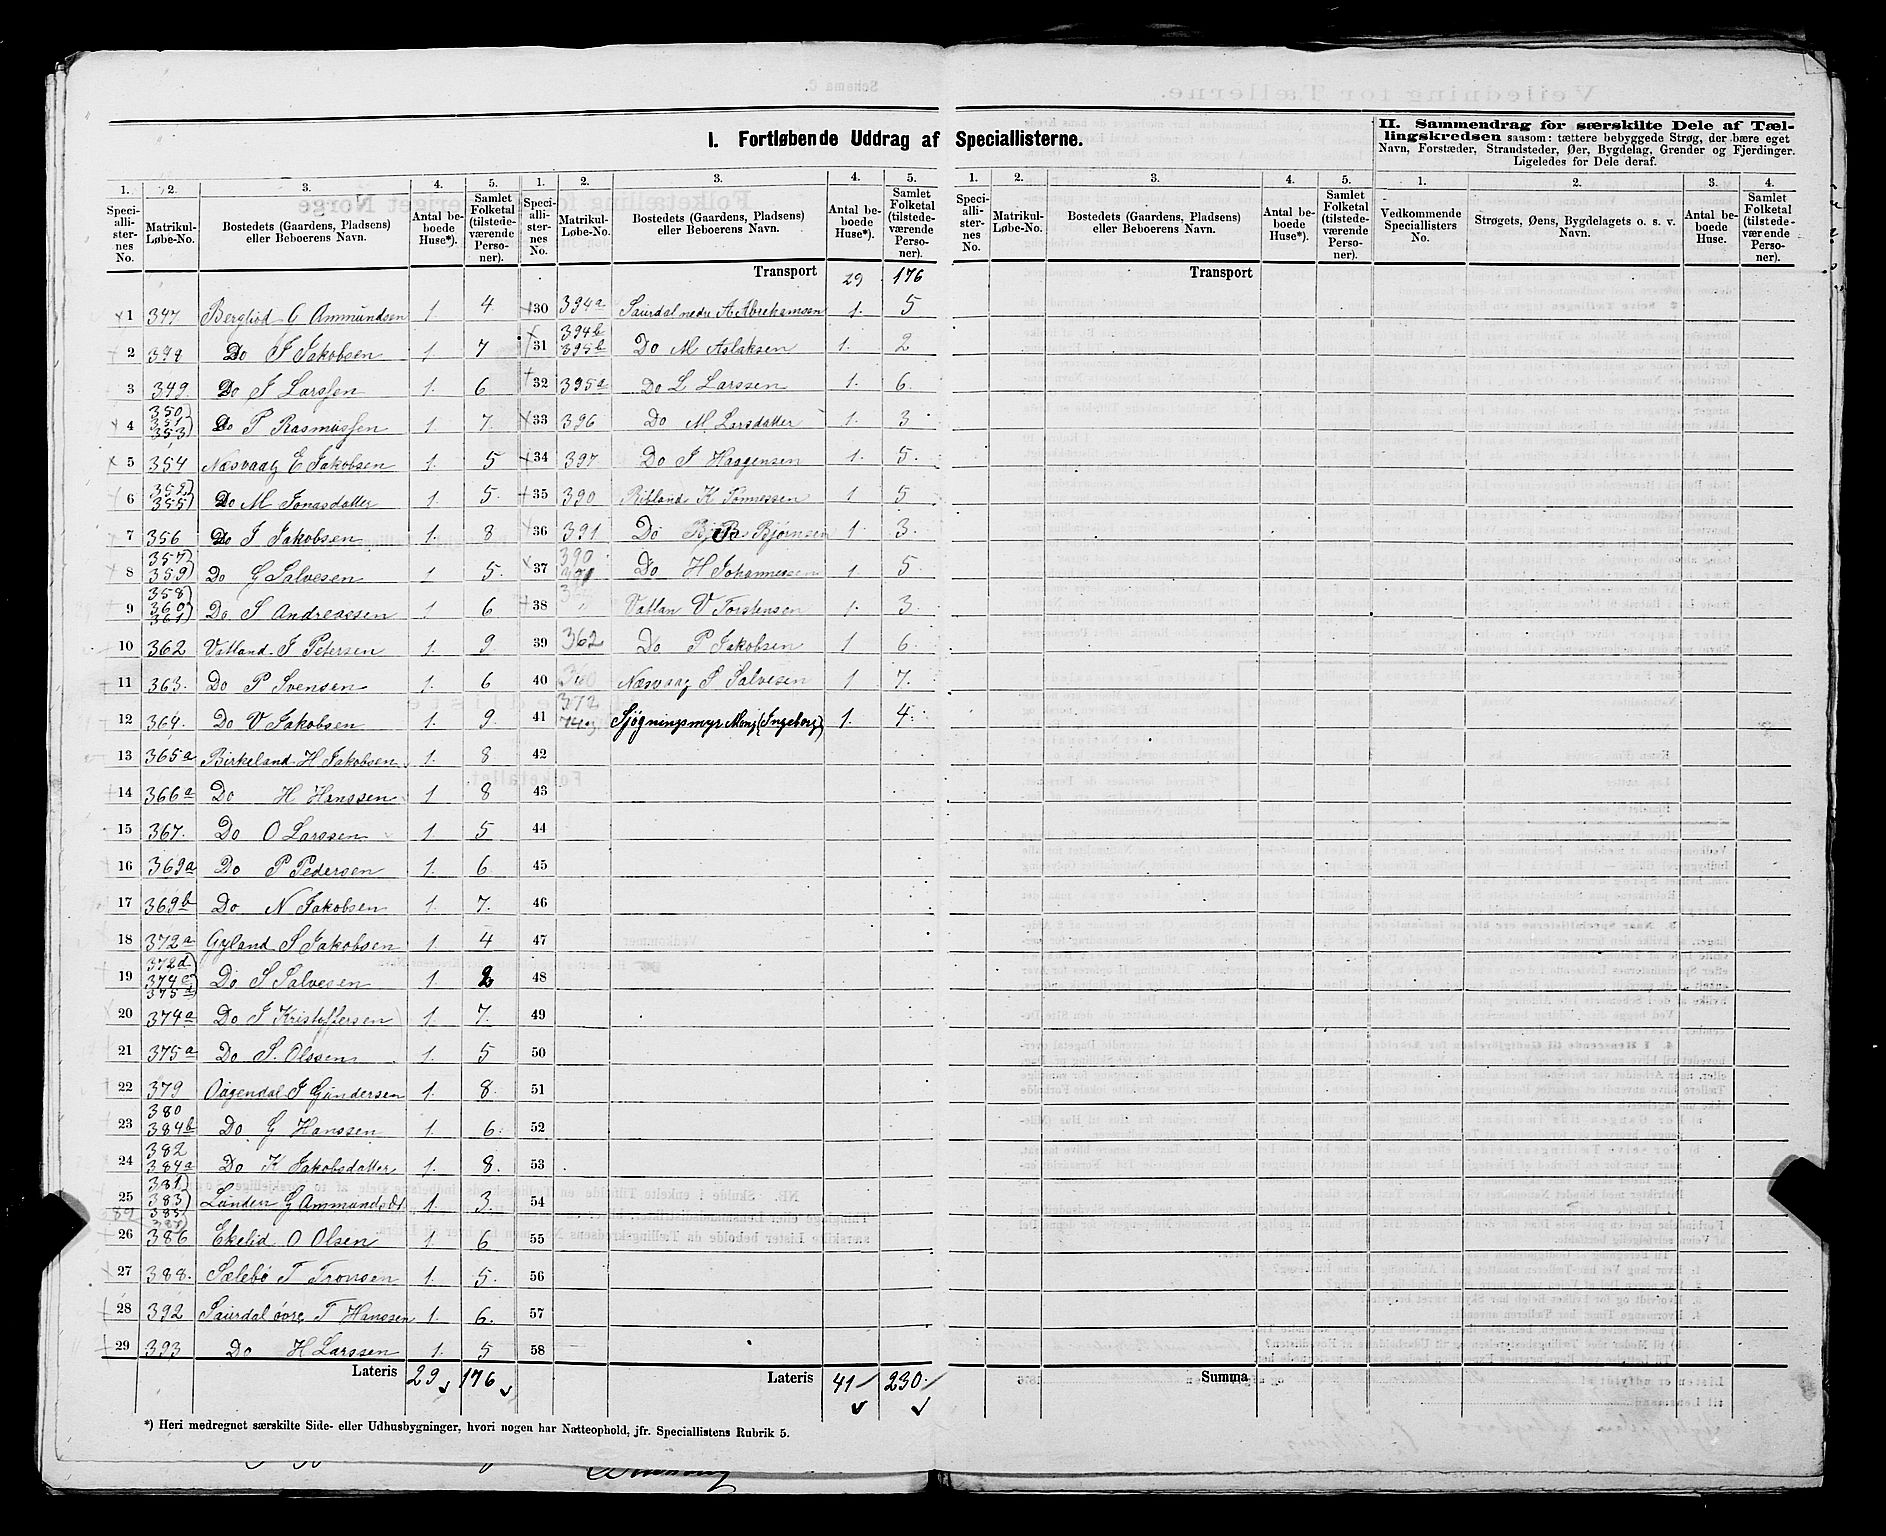 I. Fortløbende Uddrag af Speciallisterne.
II. Sammendrag for særskilte Dele af Tællingskredsen saasom: tættere bebyggede Strøg, der bære eget Navn, Forstæder, Strandsteder, Øer, Bygdelag, Grender og Fjerdinger. Ligeledes for Dele deraf.
1. 2. 3. 4. 5. 1. 2. 3. 4. 5. 1. 2. 3. 4. 5. 1. 2. 3. 4.
Speciallisternes No. Matrikul-Løbe-No. Bostedets (Gaardens, Pladsens) eller Beboerens Navn. Antal beboede Huse*). Samlet Folketal (tilstedeværende Personer).
Speciallisternes No. Matrikul-Løbe-No. Bostedets (Gaardens, Pladsens) eller Beboerens Navn. Antal beboede Huse*). Samlet Folketal (tilstedeværende Personer).
Speciallisternes No. Matrikul-Løbe-No. Bostedets (Gaardens, Pladsens) eller Beboerens Navn. Antal beboede Huse*). Samlet Folketal (tilstedeværende Personer).
Vedkommende Speciallisters No. Strøgets, Øens, Bygdelagets o. s. v. Navn. Antal beboede Huse. Samlet Folketal (tilstedeværende Personer).
1 347 Bergliod C Ammundsen 1. 4.
2 Do J Jakobsen 1. 7
3 349. Do J Larssen 1. 6.
4 350) 351) 353) Do P Rasmussen 1. 7.
5 354 Næsvaag E Jakobsen 1. 5
6 352) 355) Do M Jonasdatter 1 5.
7 356 Do J Jakobsen 1. 8
8 357) 359) Do G Salvesen 1 5.
9 358) 360) 361) Do S Andreassen 1 6
10 362 Vatland J Petersen 1. 9.
11 363. Do P Svensen 1. 6
12 364. Do V Jakobsen 1. 9.
13 365a Birkeland H Jakobsen 1. 8.
14 366a Do H Hanssen 1 8
15 367. Do O Larssen 1. 5
16 369a Do P Pedersen 1. 6.
17 369b Do N Jakobsen 1. 7.
18 372a Gyland S Jakobsen 1. 4
19 372d) 374c) 375d) Do S Salvesen 1. 2
20 374a Do J Kristoffersen 1. 7.
21 375a Do S. Olssen 1. 5
22 379 Oagendal J Gundersen 1. 8.
23 380 384b Do G Hanssen 1. 6.
24 382 384a Do K Jakobsdatter 1. 8.
25 381) 383) 385) Lunden G Ammundsdt 1. 3.
26 387) 386 Ekelid O Olsen 1. 6
27 388. Sælebø T Tronsen 1. 5.
28 392 Saurdal övre T Hanssen 1. 6.
29 393 Do H Larssen 1. 5
Lateris 29 176
Transport 29 176
30 394a Saurdal nedre A Abrehamsen 1. 5
31 394b 395b Do M Aslaksen 1. 2
32 395a Do L Larssen 1. 6.
33 396 Do M Larsdatter 1. 3
34 397 Do J Haagensen 1. 5.
35 390 Ritland K Tønnessen 1 5
36 391 Do Bjørnsen 1 3.
37 390 391 Do H Johannessen 1 5.
38 " Vatlan V Torstensen 1. 3.
39 362 Do P Jakobsen 1 6.
40 Næsvaag S Salvesen 1 7.
41 372 Sjøgningsmyr Monj (Ingeborg) 1. 4.
42
43
44
45
46
47
48
49
50
51
52
53
54
55
56
57
58
Lateris 41 230
Transport
Summa
*) Heri medregnet særskilte Side- eller Udhusbygninger, hvori nogen har Natteophold, jfr. Speciallistens Rubrik 5.